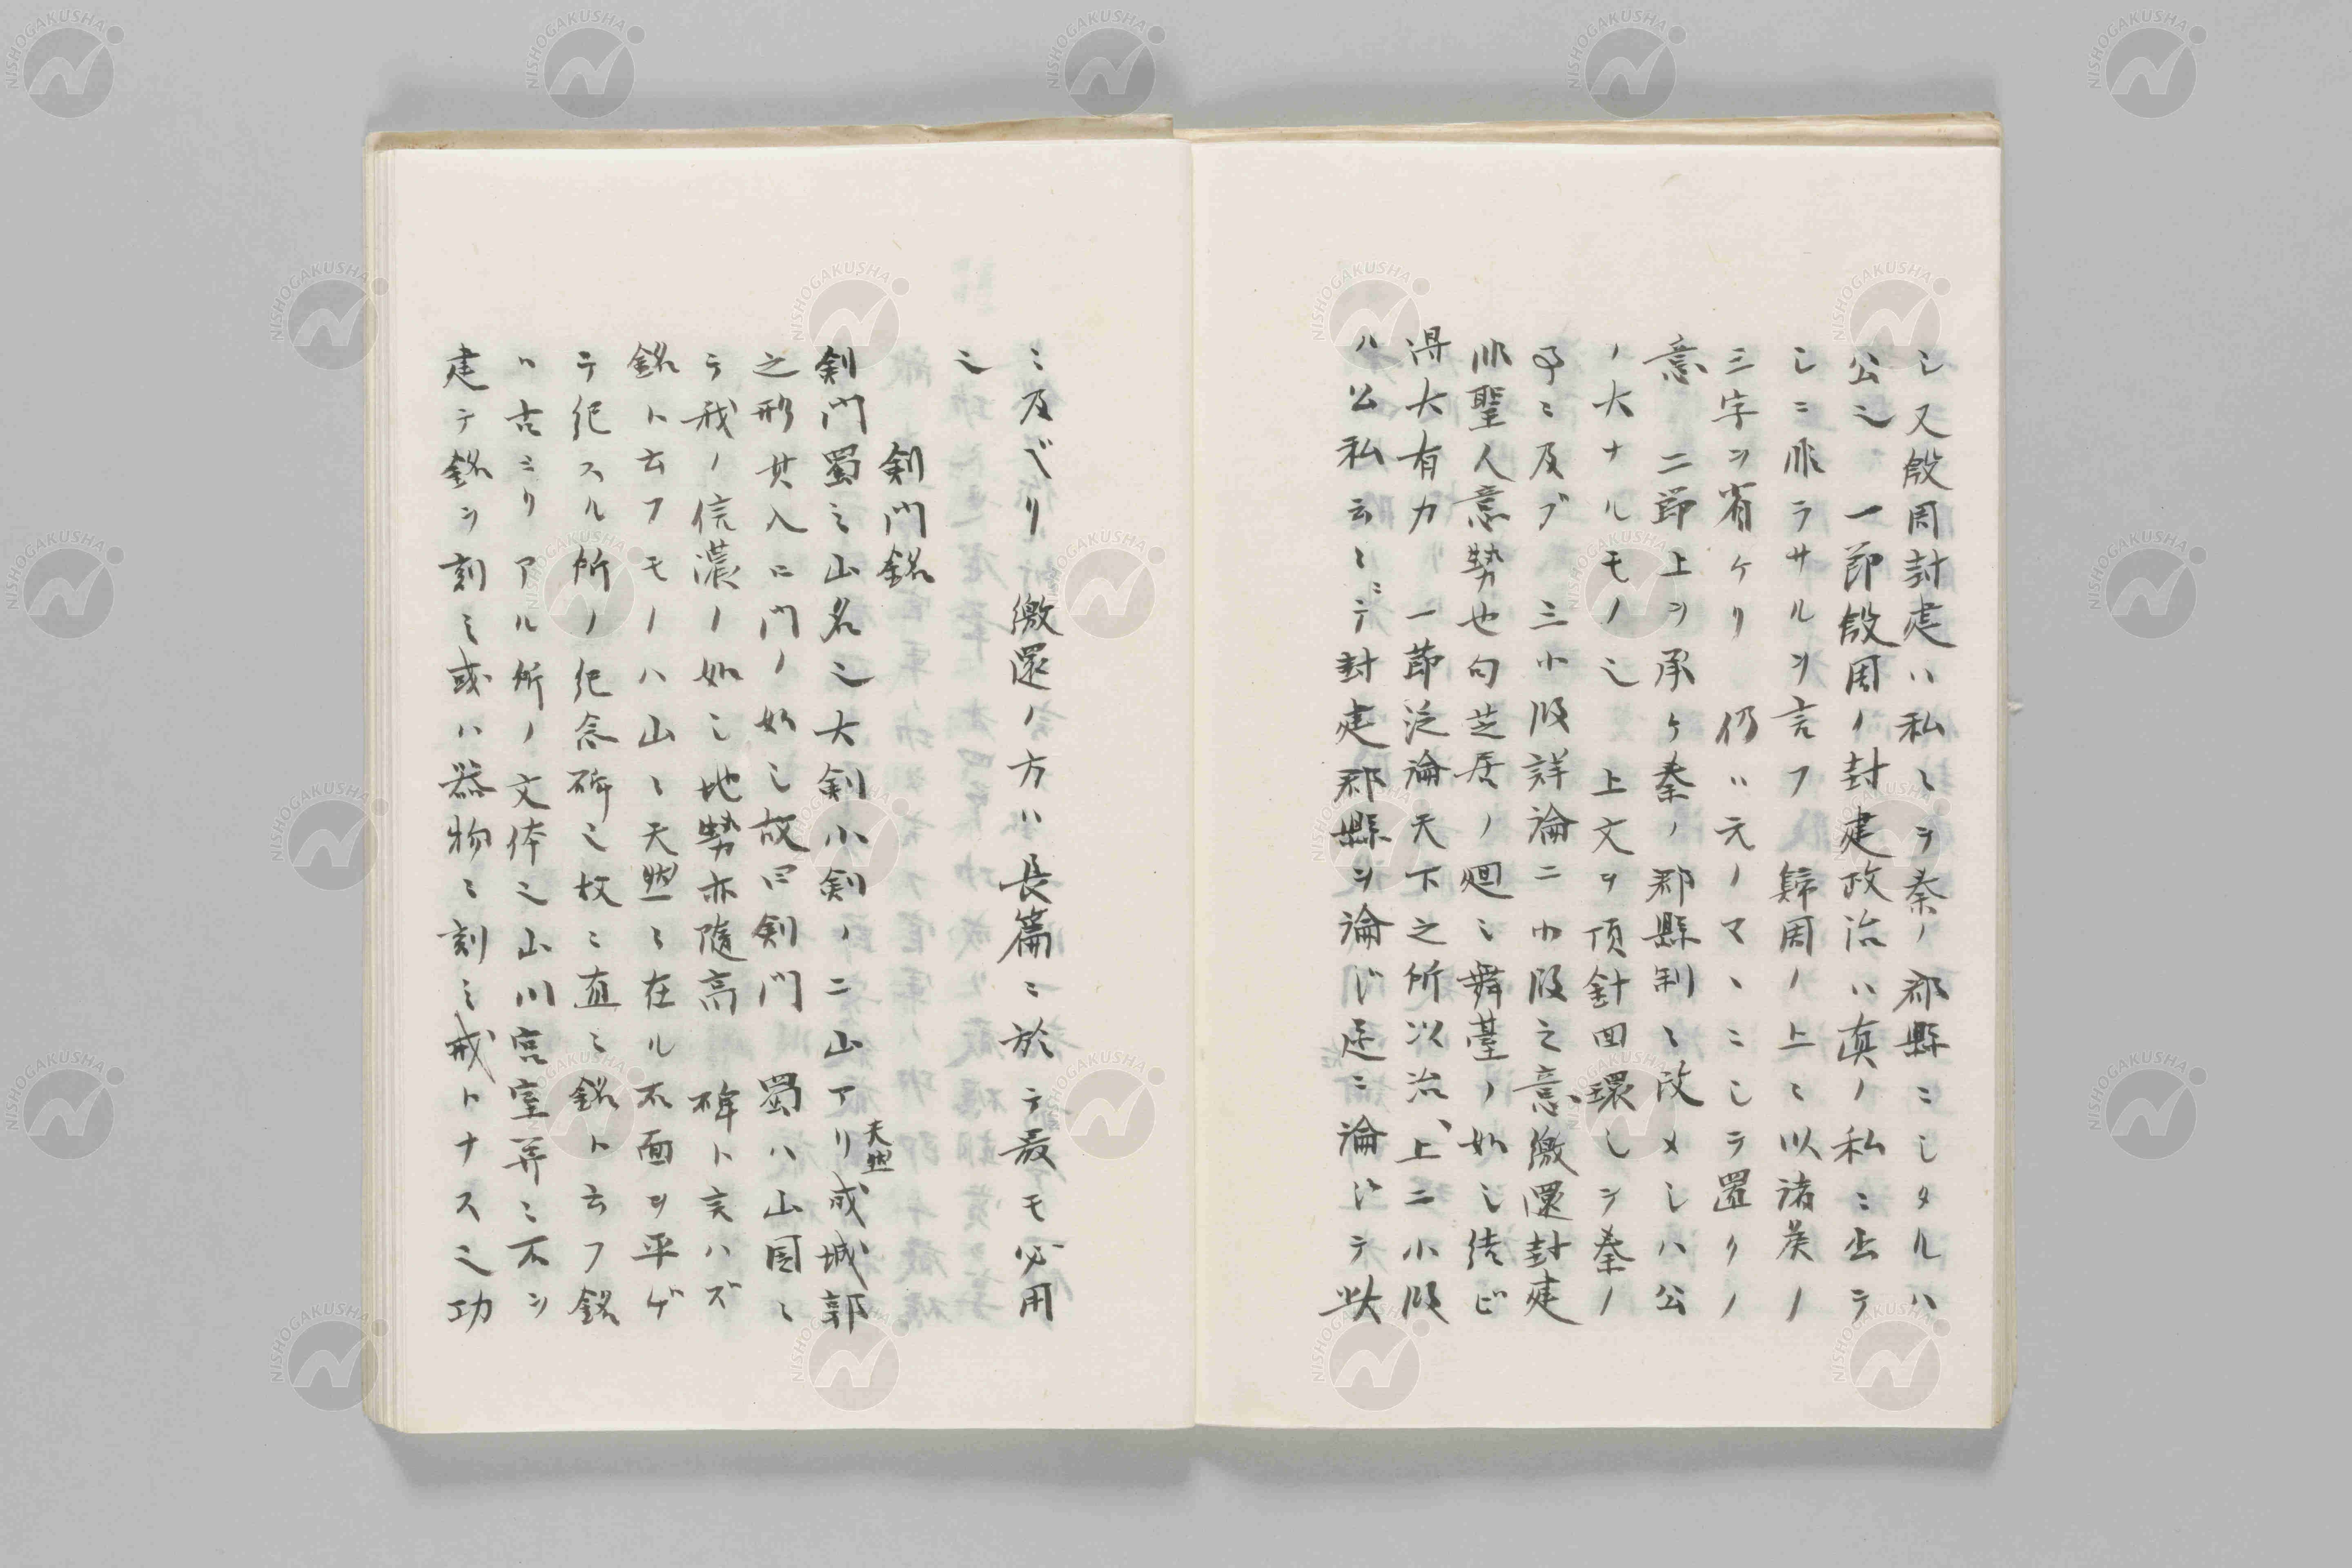 シ又殷周封建ハ私ニシテ秦ノ郡縣ニシタルハ
公也 一節殷周ノ封建政治ハ真ノ私ニ出テ
シニ非ラサルヲ言フ 歸周ノ上ニ以諸矦ノ
三字ヲ省ケリ 仍ハ元ノマヽニシテ置クノ
意 二節上ヲ承ケ秦ノ郡縣制ニ改メシハ公
ノ大ナルモノ也 上文ヲ頂針回環シテ秦ノ
事ニ及ブ 三小段詳論ニ小段之意繳還封建
非聖人意勢也句芝居ノ廻シ舞臺ノ如シ結ビ
得大有力 一節泛論天下之所以治、上二小段
ハ公私云々ニテ封建郡縣ヲ論ジ是ニ論ジテ此
ニ及ベリ 繳還ノ方ハ長篇ニ於テ最モ必用
也
剣門銘
剣門蜀ミ山名也大剣小剣ノ二山アリ天然成城郭
之形其入口門ノ如シ故曰剣門 蜀ハ山国ニ
テ我ノ信濃ノ如シ地勢亦隨高 碑ト言ハズ
銘ト云フモノハ山ニ天然ニ在ル石面ヲ平ゲ
テ紀スル所ノ紀念碑也故ニ直ミ銘ト云フ銘
ハ古ヨリアル所ノ文体也山川宮室並ニ石ヲ
建テ銘ヲ刻ミ或ハ器物ニ刻ミ戒トナス也功